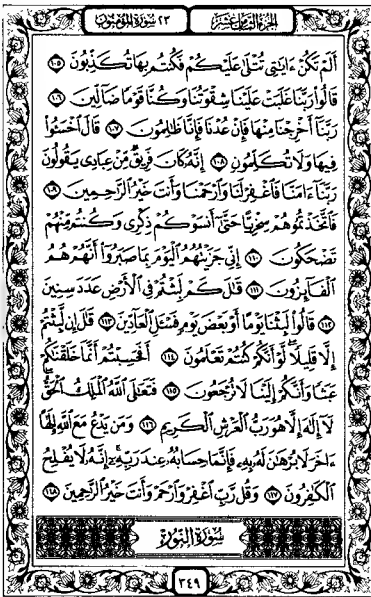 الجزء الثامن عشر
٢٣ سورة المؤمنون
أَلَمْ تَكُنْ ءَايَٰتِى تُتْلَىٰ عَلَيْكُمْ فَكُنتُم بِهَا تُكَذِّبُونَ ١٠٥
قَالُوا۟ رَبَّنَا غَلَبَتْ عَلَيْنَا شِقْوَتُنَا وَكُنَّا قَوْمًا ضَآلِّينَ ١٠٦
رَبَّنَآ أَخْرِجْنَا مِنْهَا فَإِنْ عُدْنَا فَإِنَّا ظَٰلِمُونَ ١٠٧ قَالَ ٱخْسَـُٔوا۟
فِيهَا وَلَا تُكَلِّمُونِ ١٠٨ إِنَّهُۥ كَانَ فَرِيقٌ مِّنْ عِبَادِى يَقُولُونَ
رَبَّنَآ ءَامَنَّا فَٱغْفِرْ لَنَا وَٱرْحَمْنَا وَأَنتَ خَيْرُ ٱلرَّٰحِمِينَ ١٠٩
فَٱتَّخَذْتُمُوهُمْ سِخْرِيًّا حَتَّىٰٓ أَنسَوْكُمْ ذِكْرِى وَكُنتُم مِّنْهُمْ
تَضْحَكُونَ ١١٠ إِنِّى جَزَيْتُهُمُ ٱلْيَوْمَ بِمَا صَبَرُوٓا۟ أَنَّهُمْ هُمُ
ٱلْفَآئِزُونَ ١١١ قَٰلَ كَمْ لَبِثْتُمْ فِى ٱلْأَرْضِ عَدَدَ سِنِينَ
١١٢ قَالُوا۟ لَبِثْنَا يَوْمًا أَوْ بَعْضَ يَوْمٍ فَسْـَٔلِ ٱلْعَآدِّينَ ١١٣ قَٰلَ إِن لَّبِثْتُمْ
إِلَّا قَلِيلًا لَّوْ أَنَّكُمْ كُنتُمْ تَعْلَمُونَ ١١٤ أَفَحَسِبْتُمْ أَنَّمَا خَلَقْنَٰكُمْ
عَبَثًا وَأَنَّكُمْ إِلَيْنَا لَا تُرْجَعُونَ ١١٥ فَتَعَٰلَى ٱللَّهُ ٱلْمَلِكُ ٱلْحَقُّ
لَآ إِلَٰهَ إِلَّا هُوَ رَبُّ ٱلْعَرْشِ ٱلْكَرِيمِ ١١٦ وَمَن يَدْعُ مَعَ ٱللَّهِ إِلَٰهًا
ءَاخَرَ لَا بُرْهَٰنَ لَهُۥ بِهِۦ فَإِنَّمَا حِسَابُهُۥ عِندَ رَبِّهِۦٓ إِنَّهُۥ لَا يُفْلِحُ
ٱلْكَٰفِرُونَ ١١٧ وَقُل رَّبِّ ٱغْفِرْ وَٱرْحَمْ وَأَنتَ خَيْرُ ٱلرَّٰحِمِينَ ١١٨
سورة النور
٣٤٩